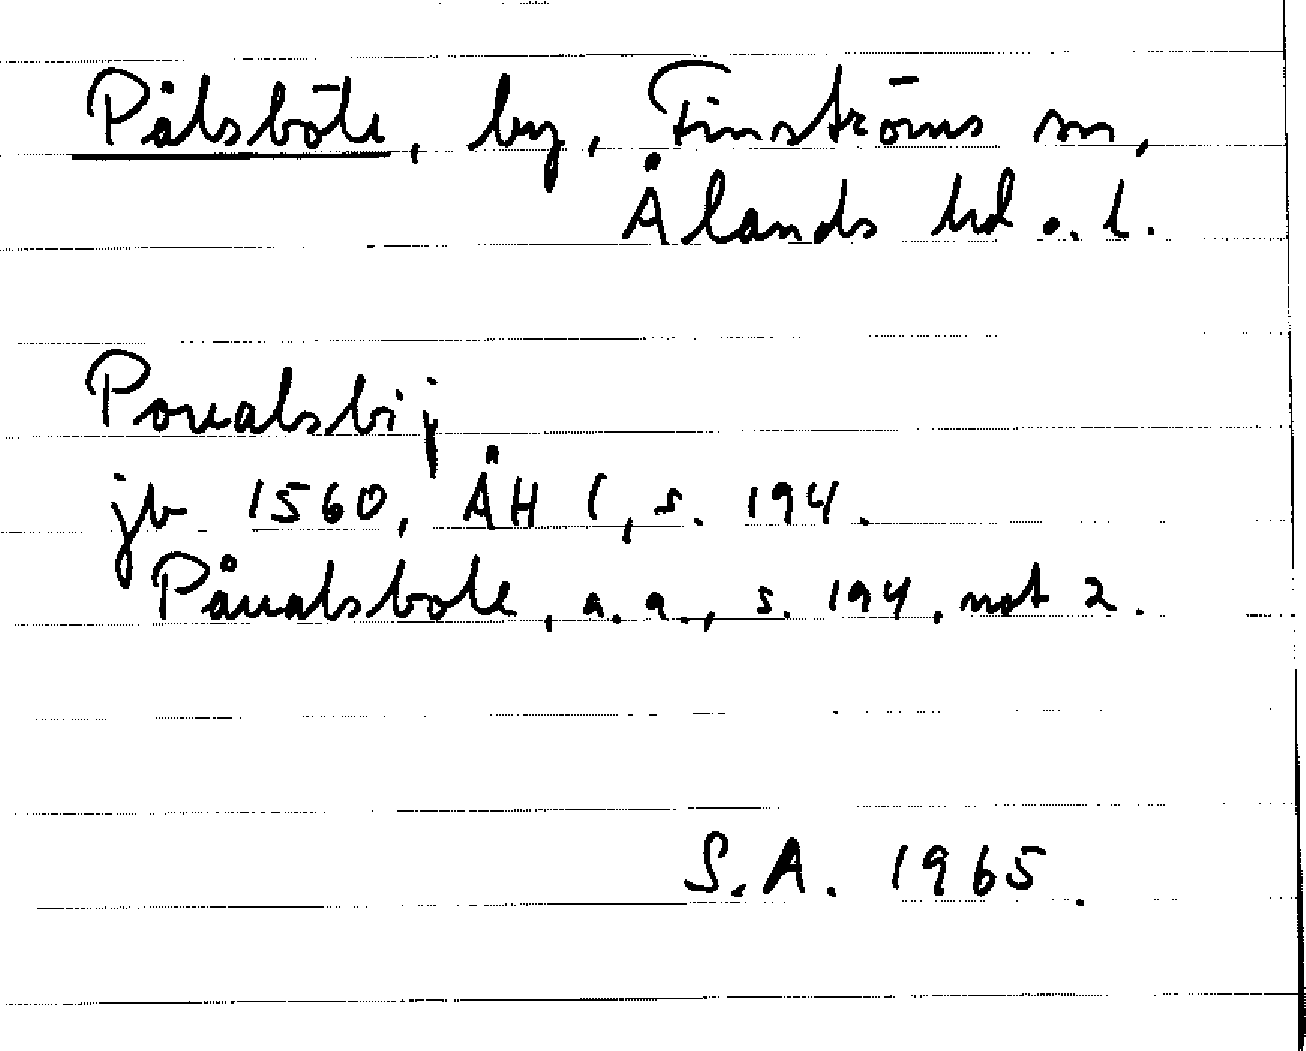 Pålsböle, by, Finströms sn,
Ålands hd o. l.
Poualsbij
jb 1560, ÅH 1, s. 194.
Påualsbole, a. a., s. 194, not 2.
S.A. 1965.